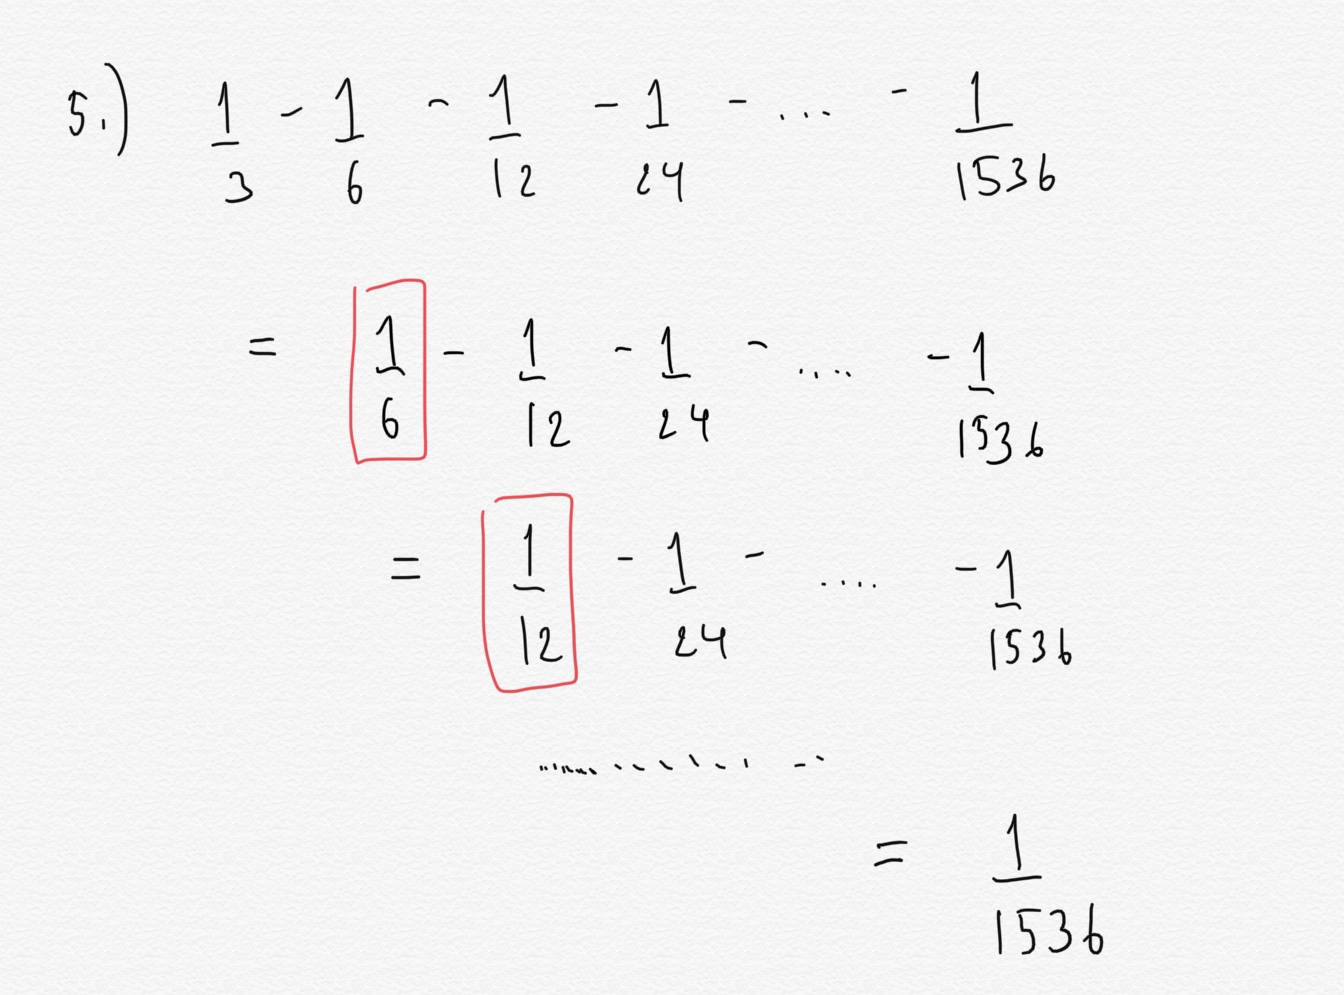 5.) 1/3 - 1/6 - 1/12 - 1/24 - ... - 1/1536
= 1/6 - 1/12 - 1/24 - .... - 1/1536
= 1/12 - 1/24 - .... - 1/1536
= 1/1536